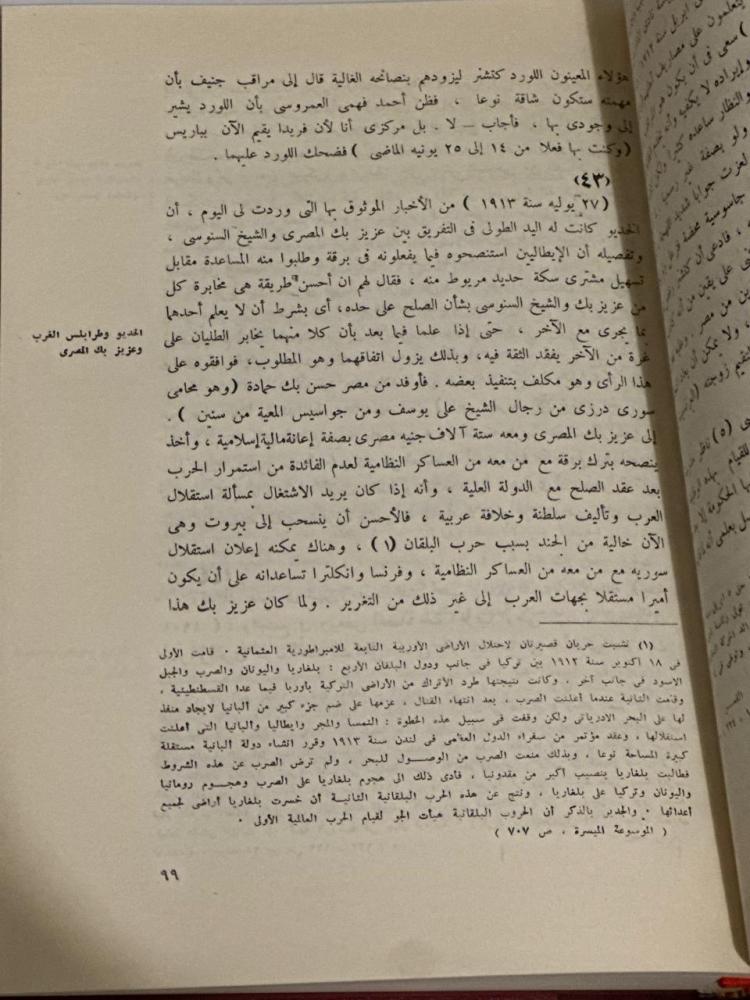 هؤلاء المعينون اللورد كتشنر ليزودهم بنصائحه الغالية قال إلى مراقب جنيف بأن
مهمته ستكون شاقة نوعا ، فظن أحمد فهمى العمروسى بأن اللورد يشير
إلى وجودى بها ، فأجاب — لا . بل مركزى أنا لأن فريدا يقيم الآن بباريس
(وكنت بها فعلا من ١٤ إلى ٢٥ يونيه الماضى ) فضحك اللورد عليهما .
(٤٣)
(٢٧ يوليه سنة ١٩١٣ ) من الأخبار الموثوق بها التى وردت لى اليوم ، أن
الخديو كانت له اليد الطولى فى التفريق بين عزيز بك المصرى والشيخ السنوسى ،
وتفصيله أن الإيطاليين استنصحوه فيما يفعلونه فى برقة وطلبوا منه المساعدة مقابل
تسهيل مشترى سكة حديد مريوط منه ، فقال لهم ان أحسن طريقة هى مخابرة كل
من عزيز بك والشيخ السنوسى بشأن الصلح على حده، أى بشرط أن لا يعلم أحدهما
بما يجرى مع الآخر ، حتى إذا علما فيما بعد بأن كلا منهما يخابر الطليان على
غرة من الآخر بفقد الثقة فيه، وبذلك يزول اتفاقهما وهو المطلوب، فوافقوه على
هذا الرأى وهو مكلف بتنفيذ بعضه . فأوفد من مصر حسن بك حمادة (وهو محامى
سورى درزى من رجال الشيخ على يوسف ومن جواسيس المعية من سنين ) .
إلى عزيز بك المصرى ومعه ستة آلاف جنيه مصرى بصفة إعانة مالية إسلامية ، وأخذ
ينصحه بترك برقة مع من معه من العساكر النظامية لعدم الفائدة من استمرار الحرب
بعد عقد الصلح مع الدولة العلية ، وأنه إذا كان يريد الاشتغال بمسألة استقلال
العرب وتأليف سلطنة وخلافة عربية ، فالأحسن أن ينسحب إلى بيروت وهى
الآن خالية من الجند بسبب حرب البلقان (١) ، وهناك يمكنه إعلان استقلال
سوريه مع من معه من العساكر النظامية ، وفرنسا وانكلترا تساعدانه على أن يكون
أميرا مستقلا بجهات العرب إلى غير ذلك من التغرير . ولما كان عزيز بك هذا
الخديو وطرابلس الغرب
وعزيز بك المصرى
(١) نشبت حربان قصيرتان لاحتلال الأراضى الأوربية التابعة للامبراطورية العثمانية . قامت الأولى
فى ١٨ اكتوبر سنة ١٩١٢ بين تركيا فى جانب ودول البلقان الأربع : بلغاريا واليونان والصرب والجبل
الاسود فى جانب آخر . وكانت نتيجتها طرد الأتراك من الأراضى التركية بأوربا فيما عدا القسطنطينية .
وقامت الثانية عندما أعلنت الصرب ، بعد انتهاء القتال ، عزمها على ضم جزء كبير من ألبانيا لايجاد منفذ
لها على البحر الادرياتى ولكن وقفت فى سبيل هذه الخطوة : النمسا والمجر وايطاليا وألبانيا التى أعلنت
استقلالها ، وعقد مؤتمر من سفراء الدول العظمى فى لندن سنة ١٩١٣ وقرر انشاء دولة ألبانية مستقلة
كبيرة المساحة نوعا ، وبذلك منعت الصرب من الوصول للبحر ، ولم ترض الصرب عن هذه الشروط
فطالبت بلغاريا بنصيب أكبر من مقدونيا ، فأدى ذلك الى هجوم بلغاريا على الصرب وهجوم رومانيا
واليونان وتركيا على بلغاريا ، ونتج عن هذه الحرب البلقانية الثانية أن خسرت بلغاريا أراضى لجميع
أعدائها . والجدير بالذكر أن الحروب البلقانية هيأت الجو لقيام الحرب العالمية الأولى .
( الموسوعة الميسرة ، ص ٧٠٧ )
٩٩